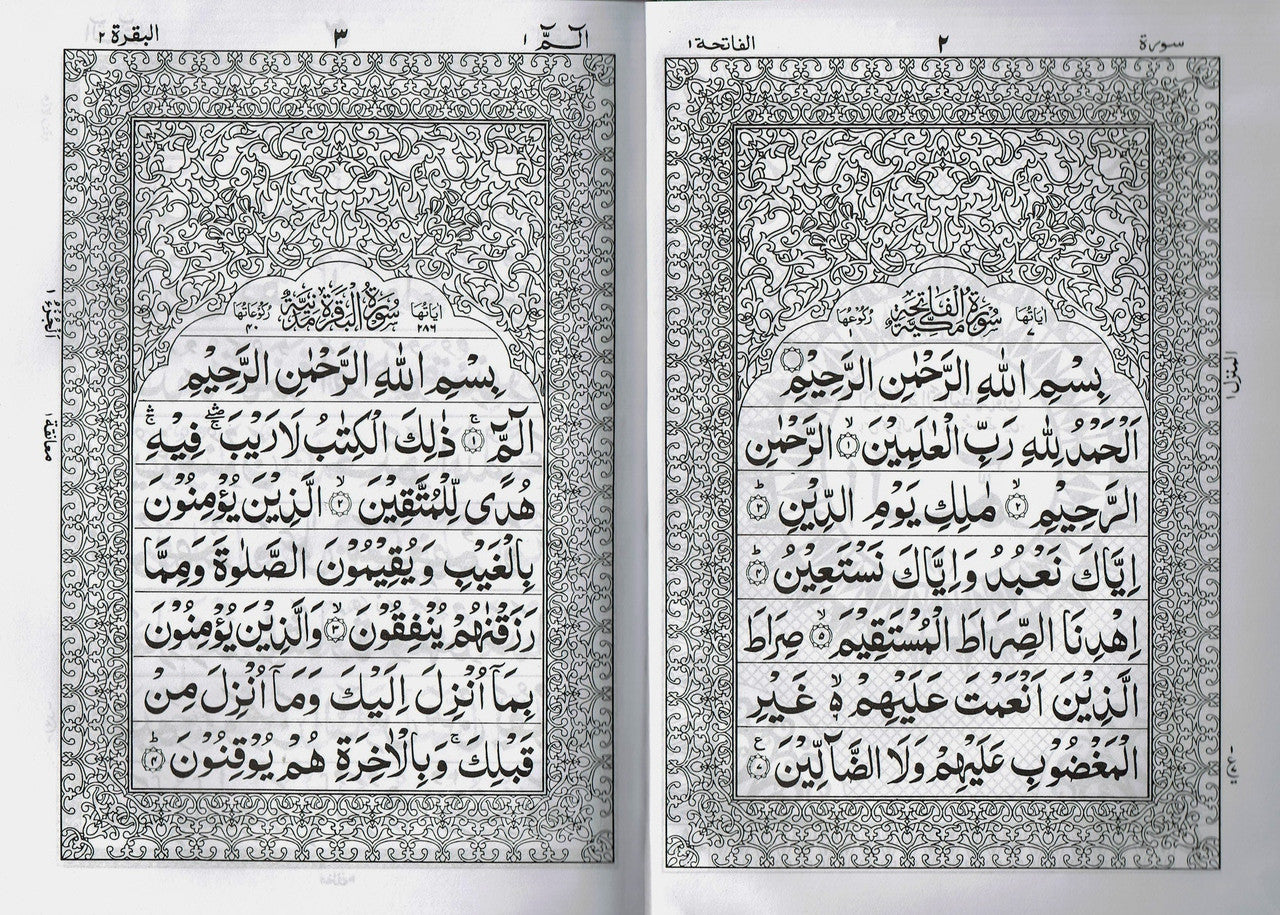 سورة ٢ الفاتحة ١
اٰیَاتُهَا ٧ سُوْرَةُ الْفَاتِحَةِ مَكِّيَّةٌ رُكُوْعُهَا ١
بِسْمِ اللّٰهِ الرَّحْمٰنِ الرَّحِيْمِ
اَلْحَمْدُ لِلّٰهِ رَبِّ الْعٰلَمِيْنَ ۙ﴿١﴾ الرَّحْمٰنِ
الرَّحِيْمِ ۙ﴿٢﴾ مٰلِكِ يَوْمِ الدِّيْنِ ؕ﴿٣﴾
اِيَّاكَ نَعْبُدُ وَاِيَّاكَ نَسْتَعِيْنُ ؕ﴿٤﴾
اِهْدِنَا الصِّرَاطَ الْمُسْتَقِيْمَ ۙ﴿٥﴾ صِرَاطَ
الَّذِيْنَ اَنْعَمْتَ عَلَيْهِمْ ۙ۬ۙ غَيْرِ
الْمَغْضُوْبِ عَلَيْهِمْ وَلَا الضَّآلِّيْنَ ﴿٧﴾ ع
المنزل ١
الٓـمّٓ ١ ٣ البقرة ٢
اٰیَاتُهَا ٢٨٦ سُوْرَةُ الْبَقَرَةِ مَدَنِيَّةٌ رُكُوْعَاتُهَا ٤٠
بِسْمِ اللّٰهِ الرَّحْمٰنِ الرَّحِيْمِ
الٓمّٓ ۚ﴿١﴾ ذٰلِكَ الْكِتٰبُ لَا رَيْبَ ۛۖۚ فِيْهِ ۛۚ
هُدًى لِّلْمُتَّقِيْنَ ۙ﴿٢﴾ الَّذِيْنَ يُؤْمِنُوْنَ
بِالْغَيْبِ وَيُقِيْمُوْنَ الصَّلٰوةَ وَمِمَّا
رَزَقْنٰهُمْ يُنْفِقُوْنَ ۙ﴿٣﴾ وَالَّذِيْنَ يُؤْمِنُوْنَ
بِمَآ اُنْزِلَ اِلَيْكَ وَمَآ اُنْزِلَ مِنْ
قَبْلِكَ ۚ وَبِالْاٰخِرَةِ هُمْ يُوْقِنُوْنَ ؕ﴿٤﴾
اَلْجُزْءُ ١
معانقة ١